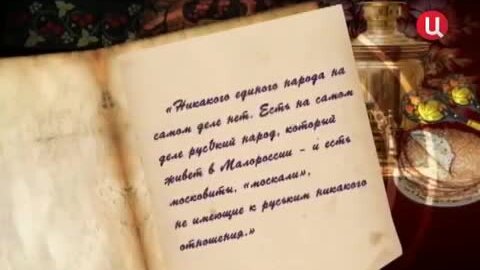 «Никакого единого народа на
самом деле нет. Есть на самом
деле руський народ, который
живет в Малороссии – и есть
московиты, "москали",
не имеющие к руським никакого
отношения.»